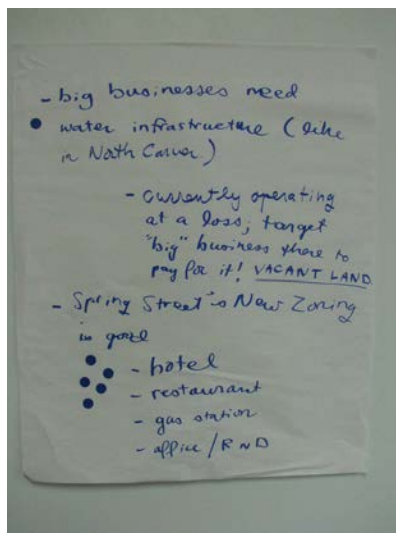 - big businesses need
water infrastructure (like
in North Carver)
- currently operating
at a loss; target
"big" business there to
pay for it! VACANT LAND
- Spring Street's New Zoning
is good
- hotel
- restaurant
- gas station
- office/RND